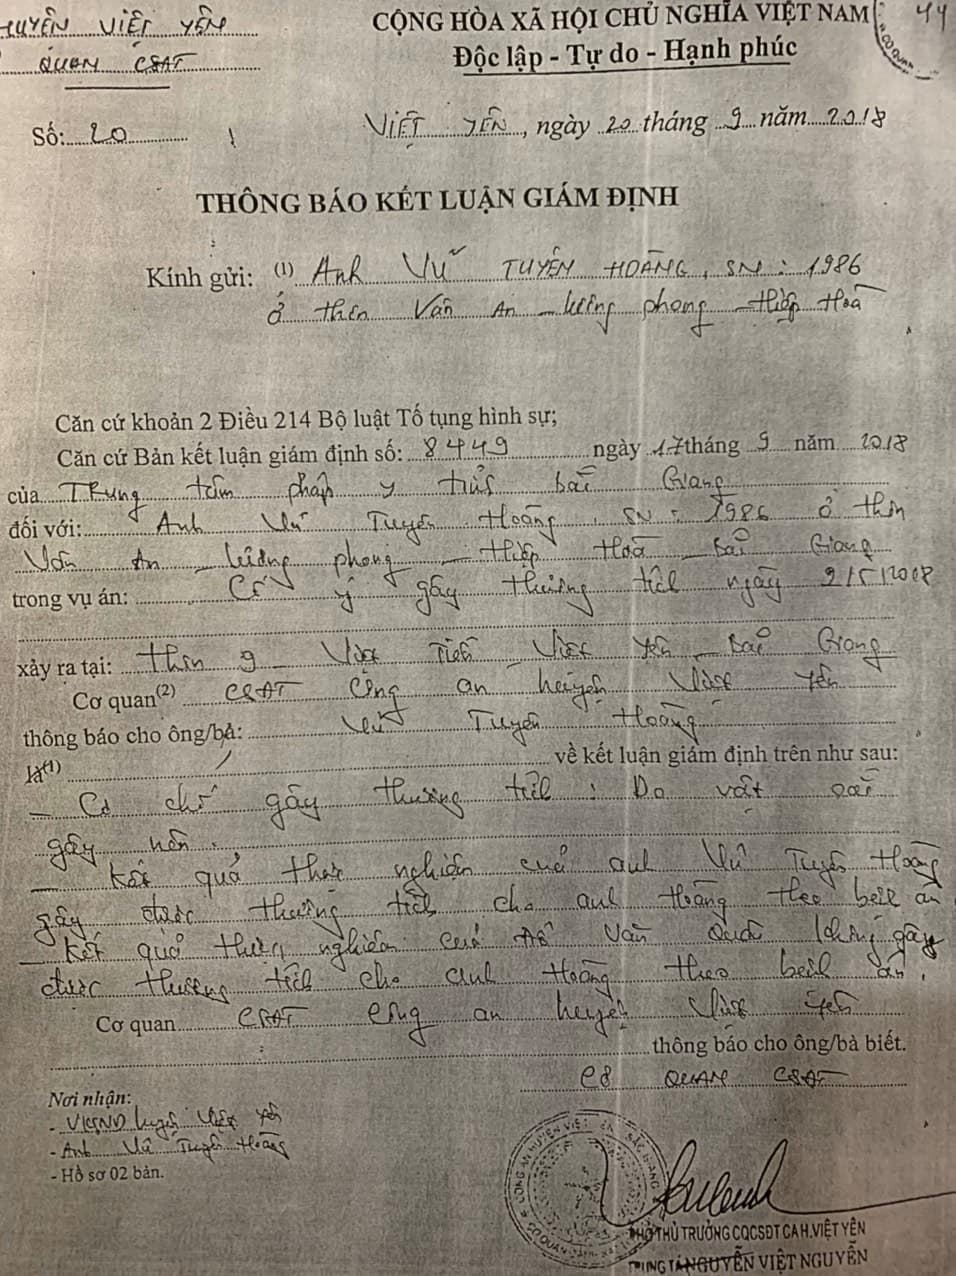 HUYỆN VIỆT YÊN
QUAN CSĐT
CỘNG HÒA XÃ HỘI CHỦ NGHĨA VIỆT NAM
44
Độc lập - Tự do - Hạnh phúc
Số: 20
VIỆT YÊN, ngày 20 tháng 9 năm 2018
THÔNG BÁO KẾT LUẬN GIÁM ĐỊNH
Kính gửi: (1) Anh Vũ TUYÊN HOÀNG, SN: 1986
ở thôn Vân An - Lương phong - Hiệp Hoà
Căn cứ khoản 2 Điều 214 Bộ luật Tố tụng hình sự;
Căn cứ Bản kết luận giám định số: 8449 ngày 17 tháng 9 năm 2018
của Trung tâm pháp y tỉnh Bắc Giang
đối với: Anh Vũ Tuyên Hoàng, SN: 1986 ở thôn
Vân An - Lương phong - Hiệp Hoà - Bắc Giang
trong vụ án: Cố ý gây thương tích ngày 2/5/2018
xảy ra tại: thôn 9 - Việt Tiến - Việt Yên - Bắc Giang
Cơ quan(2) CSĐT Công an huyện Việt Yên
thông báo cho ông/bà: Vũ Tuyên Hoàng
là(1) về kết luận giám định trên như sau:
- Cơ chế gây thương tích: Do vật
gây nên.
- Kết quả thực nghiệm của anh Vũ Tuyên Hoàng
gây được thương tích cho anh Hoàng theo bệnh án
- Kết quả thực nghiệm của Đỗ Văn không gây
được thương tích cho anh Hoàng theo bệnh án.
Cơ quan CSĐT Công an huyện Việt Yên
thông báo cho ông/bà biết.
CƠ QUAN CSĐT
Nơi nhận:
- VKSND huyện Việt Yên
- Anh Vũ Tuyên Hoàng
- Hồ sơ 02 bản.
PHÓ THỦ TRƯỞNG CQCSĐT CAH.VIỆT YÊN
TRUNG TÁ NGUYỄN VIỆT NGUYỄN